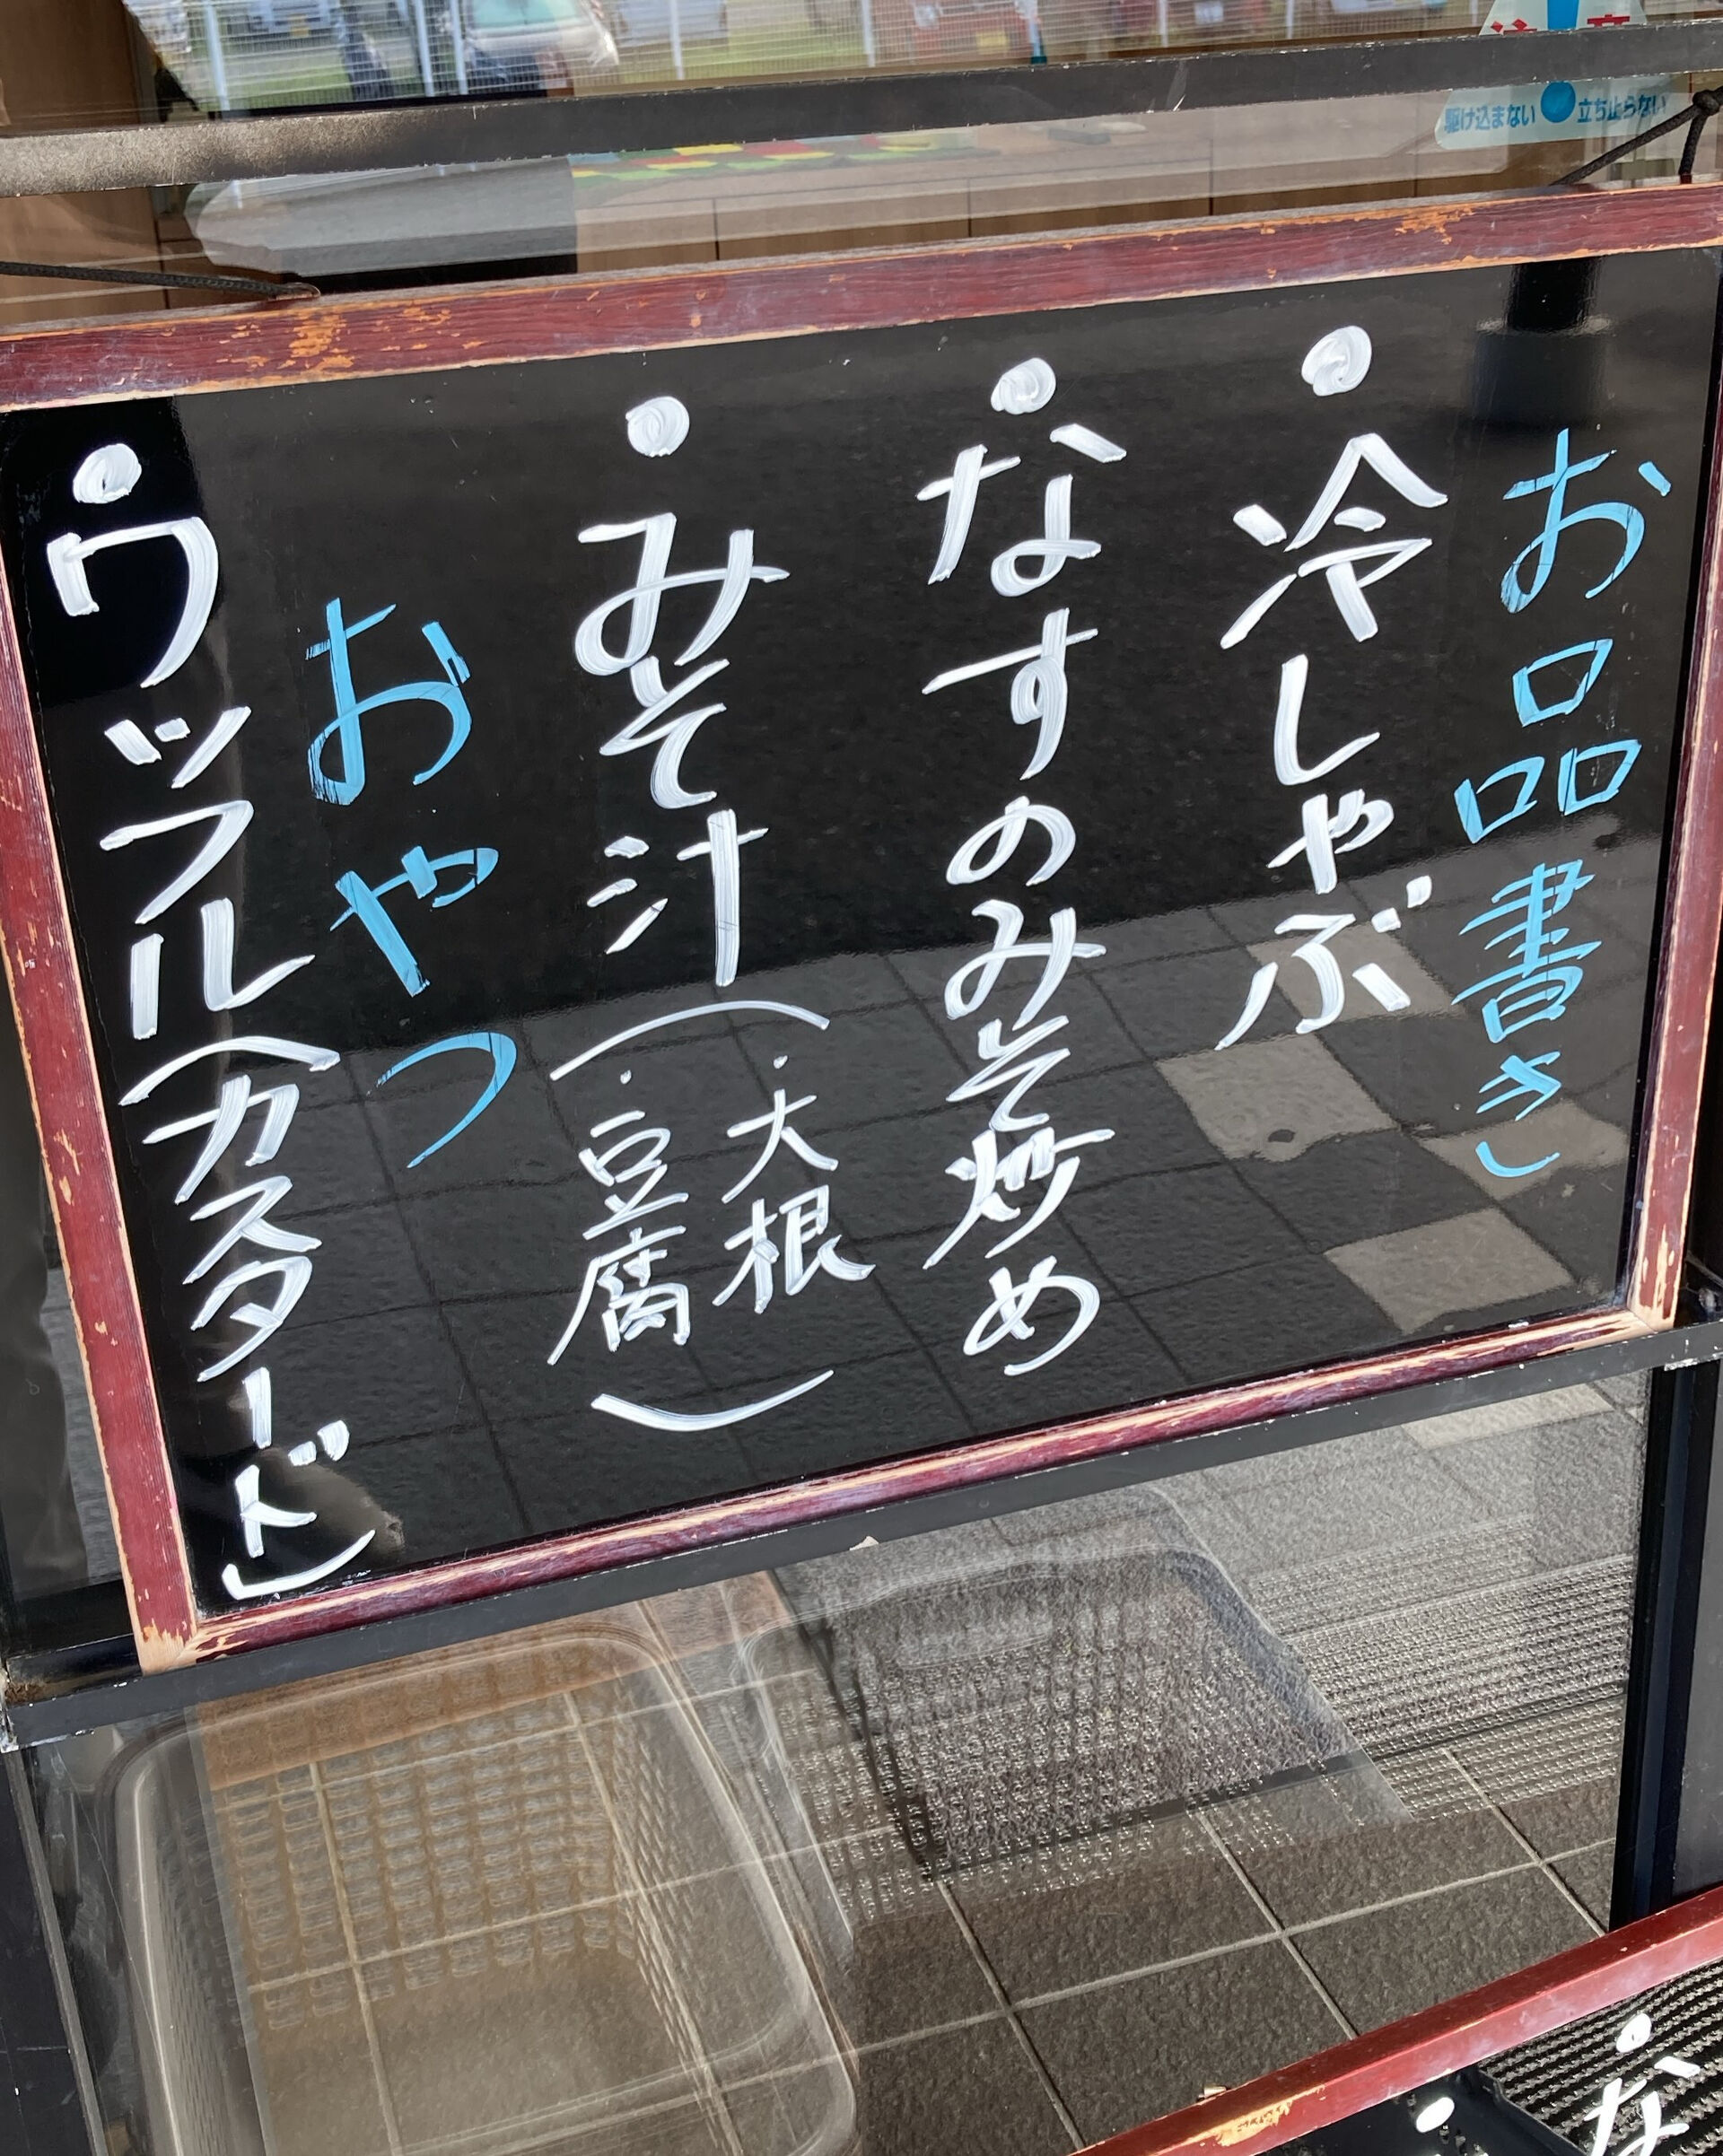 注意
駆け込まない 立ち止らない
お品書き
・冷しゃぶ
・なすのみそ炒め
・みそ汁(・大根
・豆腐)
おやつ
・ワッフル(カスタード)
・な